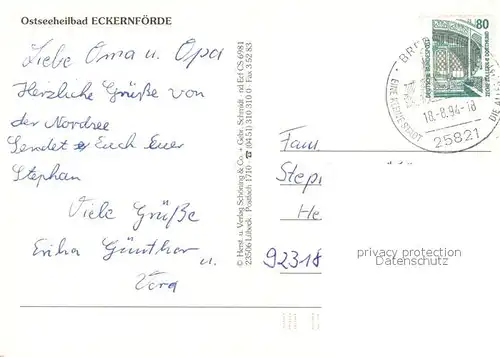 Ostseeheilbad ECKERNFÖRDE
Liebe Oma u. Opa
Herzliche Grüße von
der Nordsee
Sendet Euch Euer
Stephan
Viele Grüße
Erika Günther u.
Vera
© Herst. u. Verlag Schöning & Co. + Gebr. Schmidt
23506 Lübeck · Postfach 1710 · ☎ (04 51) 310 310 · Fax 3 52 83
80
DEUTSCHE BUNDESPOST
EINE KLEINE STADT
DIE
18.-8.94-18
25821
Fam
Step
He
92318
privacy protection
Datenschutz